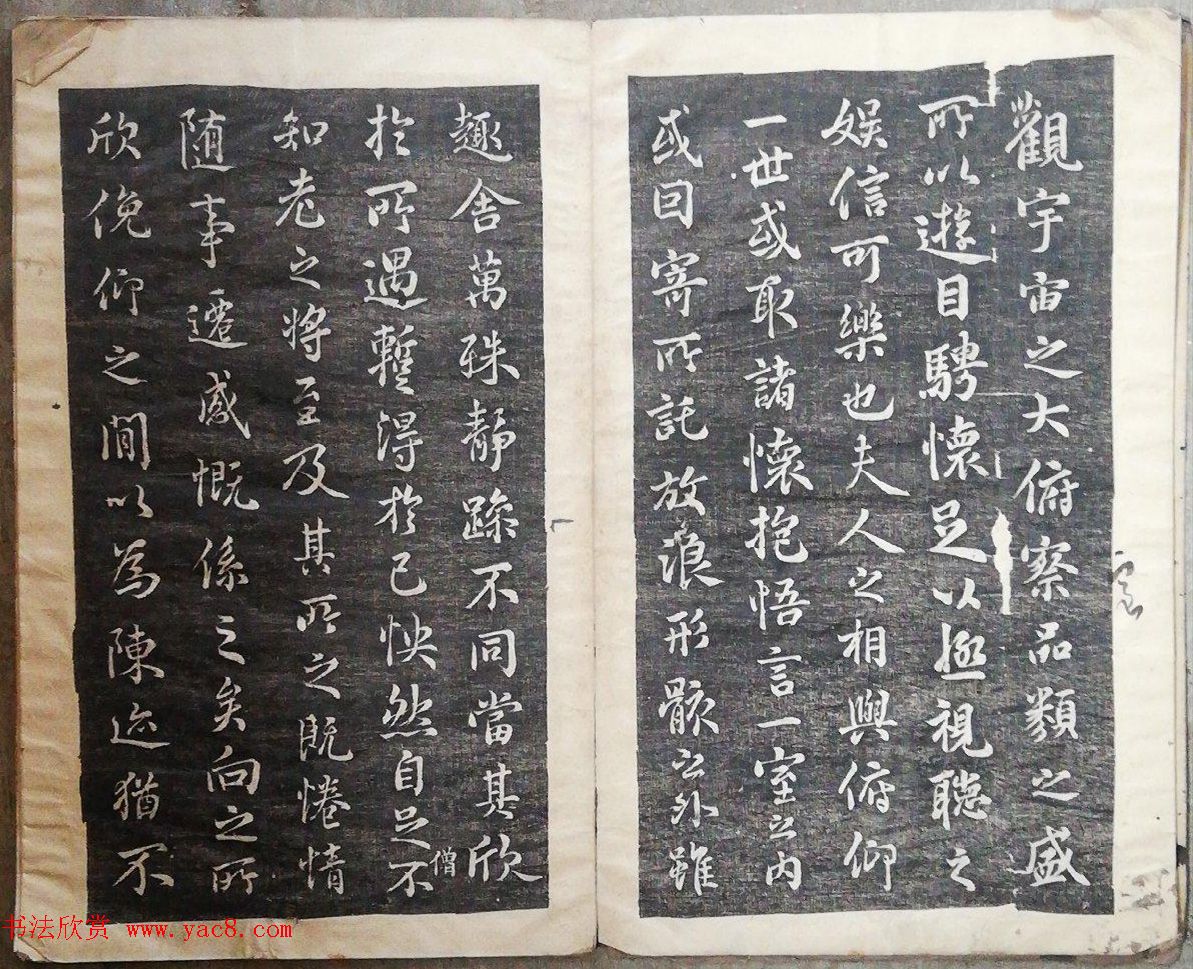 觀宇宙之大俯察品類之盛
所以遊目騁懷足以極視聽之
娛信可樂也夫人之相與俯仰
一世或取諸懷抱悟言一室之內
或因寄所託放浪形骸之外雖
趣舍萬殊靜躁不同當其欣
於所遇暫得於己怏然自足不
僧
知老之將至及其所之既惓情
隨事遷感慨係之矣向之所
欣俛仰之間以為陳迹猶不
书法欣赏 www.yac8.com